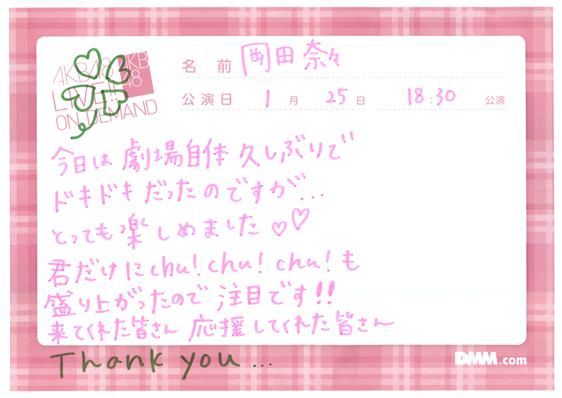 AKB48 AKB48
LIVE!!
ON DEMAND
名 前 岡田奈々
公演日 1月 25日 18:30 公演
今日は劇場自体久しぶりで
ドキドキだったのですが...
とっても楽しめました♡♡
君だけにchu! chu! chu! も
盛り上がったので注目です!!
来てくれた皆さん 応援してくれた皆さん
Thank you...
DMM.com